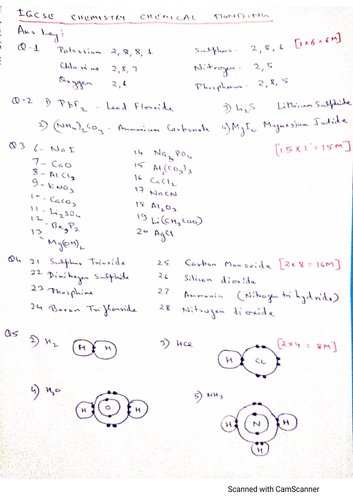 IGCSE CHEMISTRY CHEMICAL BONDING
Ans key:
Q.1 Potassium 2, 8, 8, 1 Sulphur 2, 8, 6 [1x6=6M]
Chlorine 2, 8, 7 Nitrogen 2, 5
Oxygen 2, 6 Phosphorus 2, 8, 5
Q-2 1) PbF2 - Lead Flouride 3) Li2S Lithium Sulphide
2) (NH4)2CO3 - Ammonium Carbonate 4) MgI2 Magnesium Iodide
Q3 6- NaI 14 Na3PO4 [15x1=15M]
7- CaO 15 Al2(CO3)3
8- AlCl3 16 CaCl2
9- KNO3 17 NaCN
10- CaCO3 18 Al2O3
11- Li2SO4 19 Li(CH3COO)
12 Be3P2 20 AgCl
13 Mg(OH)2
Q4 21 Sulphur Trioxide 25 Carbon Monoxide [2x8=16M]
22 Dinitrogen Sulphide 26 Silicon dioxide
23 Phosphine 27 Ammonia (Nitrogen tri hydride)
24 Boron Triflouride 28 Nitrogen dioxide
Q5 2) H2 3) HCl [2x4=8M]
H H H Cl
4) H2O 5) NH3
H O H H N H
H
Scanned with CamScanner